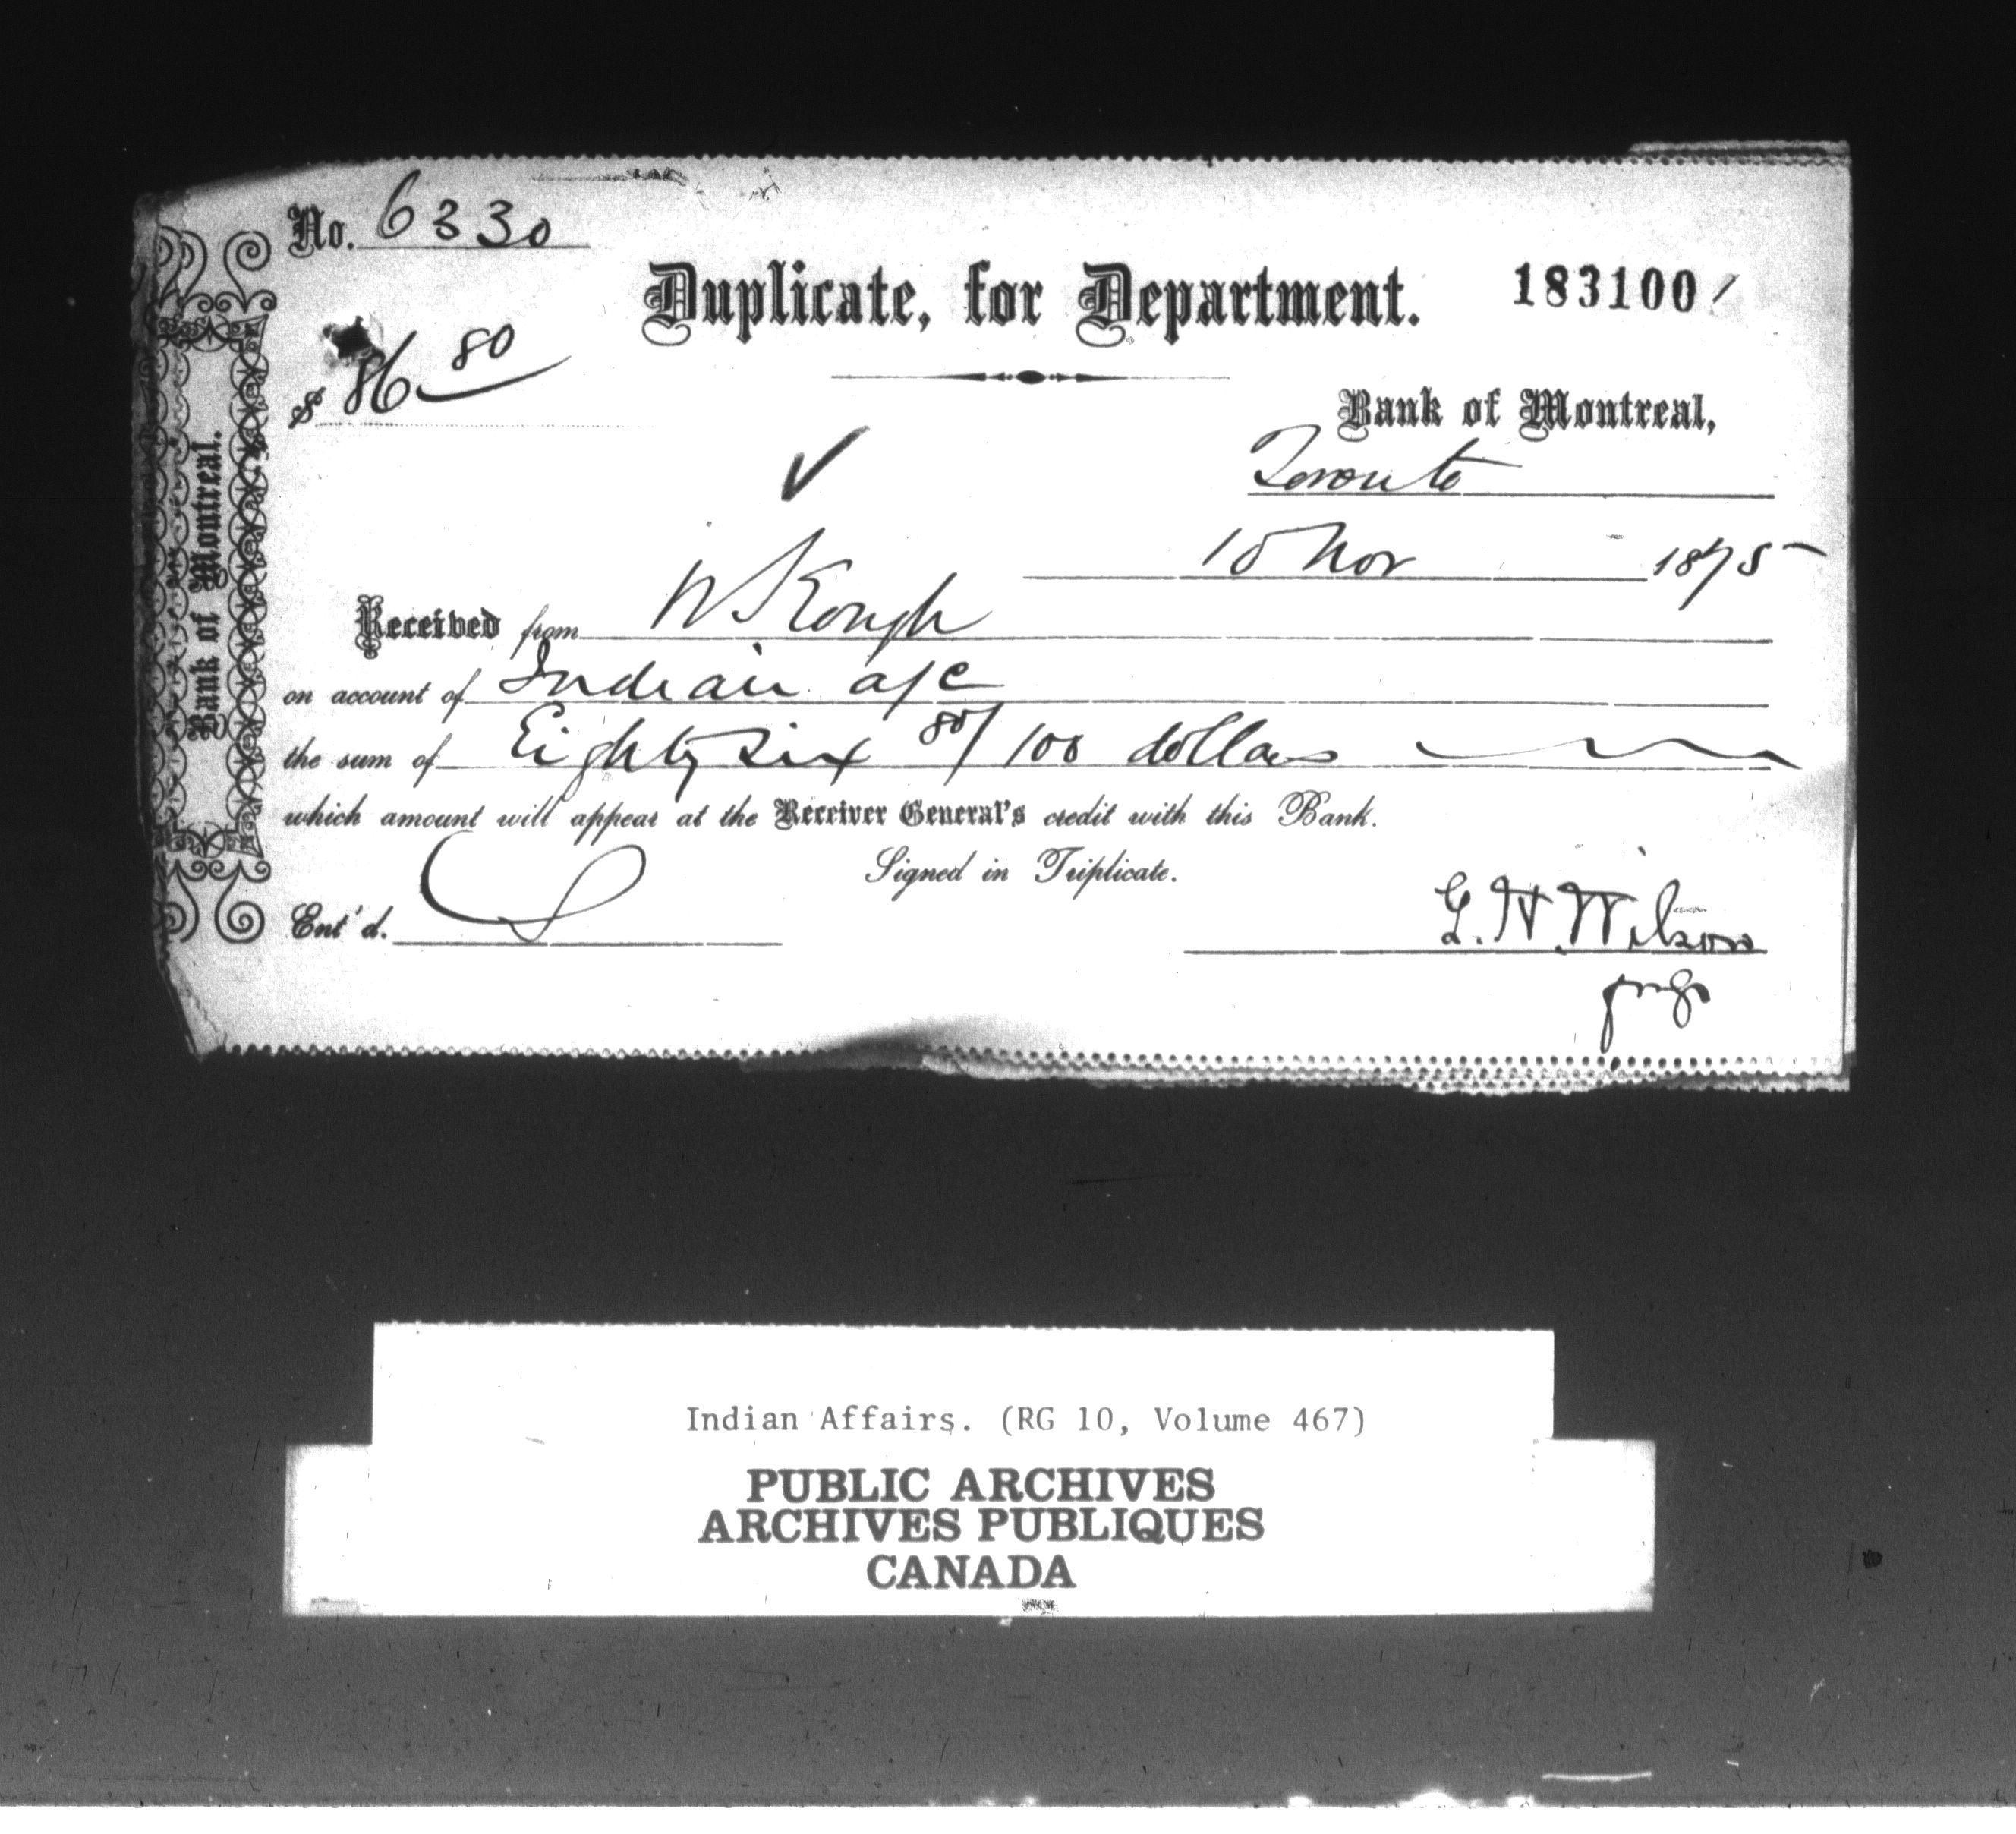 No. 6330
Duplicate, for Department. 183100
$ 86 80
Bank of Montreal,
Toronto
10 Nov 1875
Received from W Keough
on account of Indian a/c
the sum of Eighty six 80/100 dollars
which amount will appear at the Receiver General's credit with this Bank.
Signed in Triplicate.
Ent'd.
G. H. Wilson
Bank of Montreal.
Indian Affairs. (RG 10, Volume 467)
PUBLIC ARCHIVES
ARCHIVES PUBLIQUES
CANADA